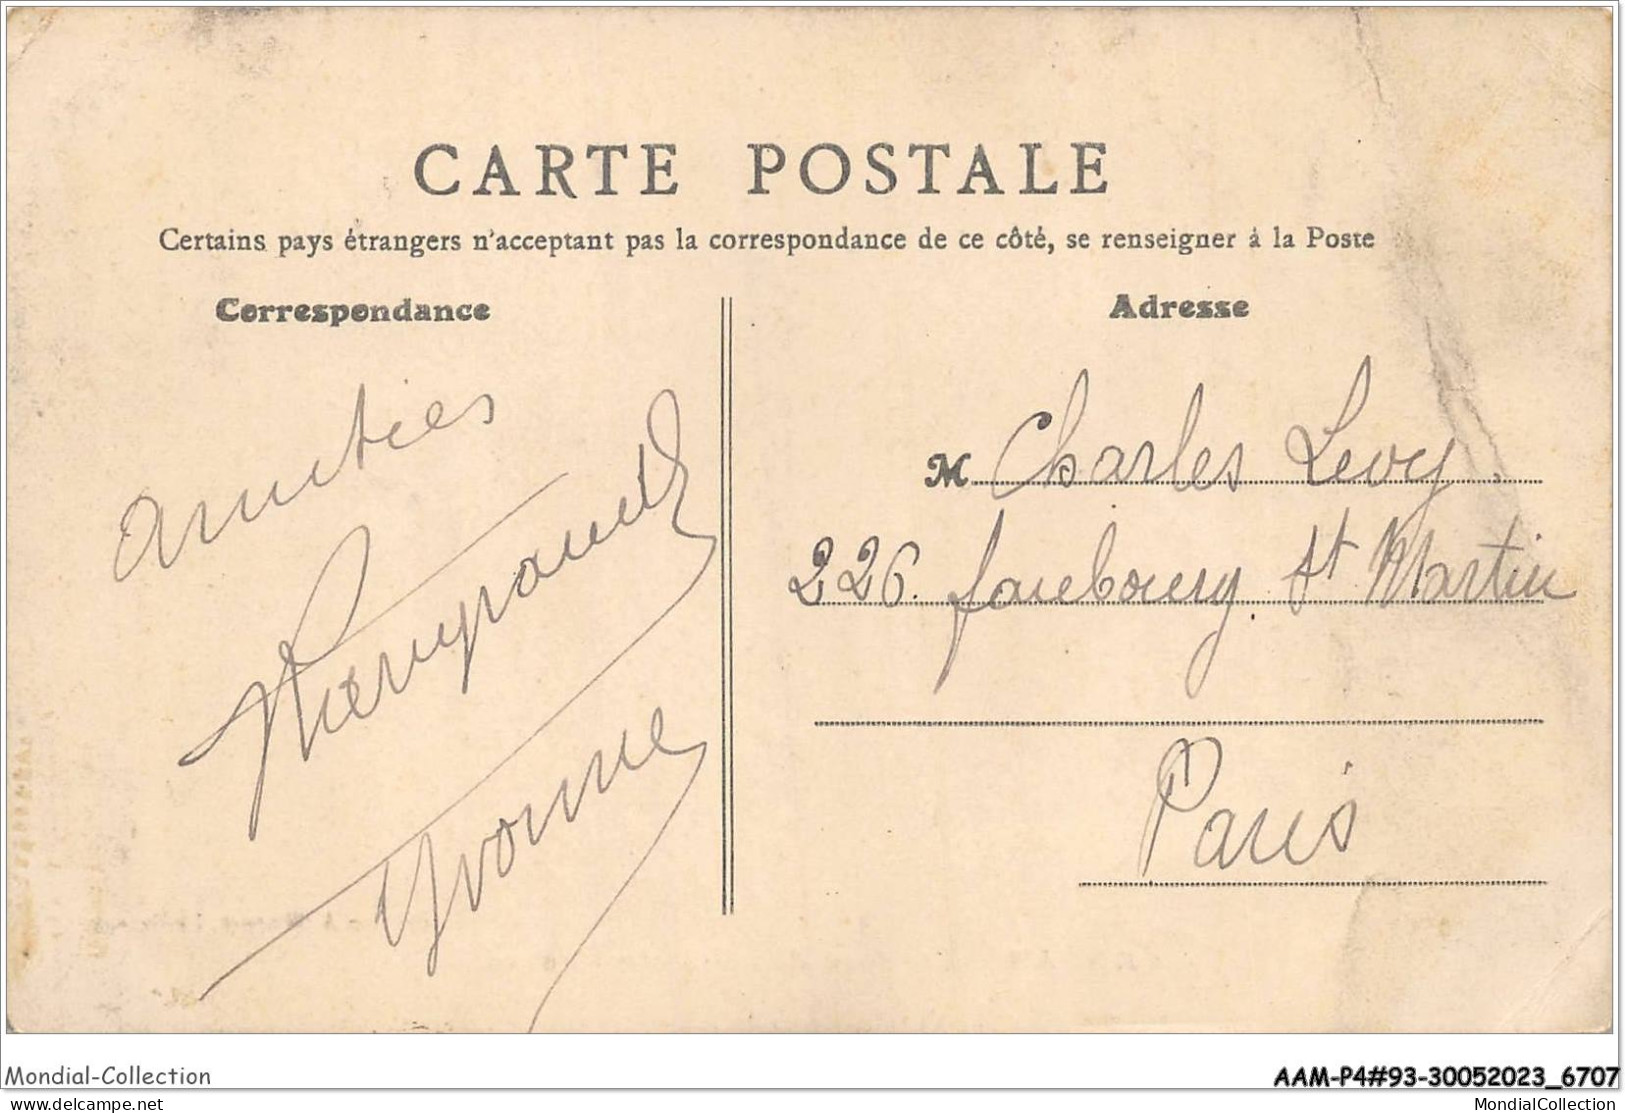 CARTE POSTALE
Certains pays étrangers n'acceptant pas la correspondance de ce côté, se renseigner à la Poste
Correspondance
amitiés
Yvonne
Adresse
M Charles Levy.
226. faubourg. St Martin
Paris
Mondial-Collection
AAM-P4#93-30052023_6707
www.delcampe.net
MondialCollection